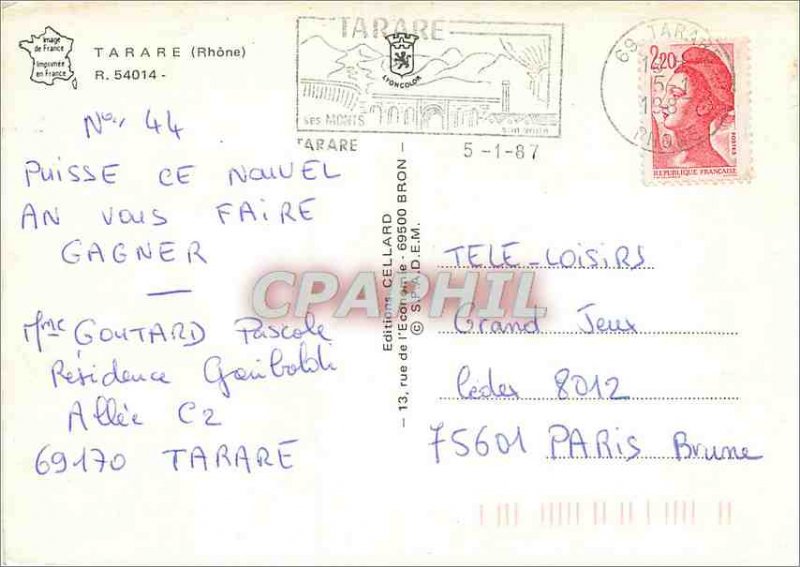 Image
de France
Imprimée
en France
TARARE (Rhône)
R. 54014 -
TARARE
LYONCOLOR
SES MONTS
TARARE
5-1-87
69 TARARE
RHONE
2,20
POSTES
REPUBLIQUE FRANÇAISE
N° 44
PUISSE CE NOUVEL
AN VOUS FAIRE
GAGNER
Mme GOUTARD Pascale
Résidence Garibaldi
Allée C2
69170 TARARE
Editions CELLARD
— 13, rue de l'Economie - 69500 BRON —
© S.P.A.D.E.M.
CPAPHIL
TELE-LOISIRS
Grand Jeux
Cédex 8012
75601 PARIS Brune